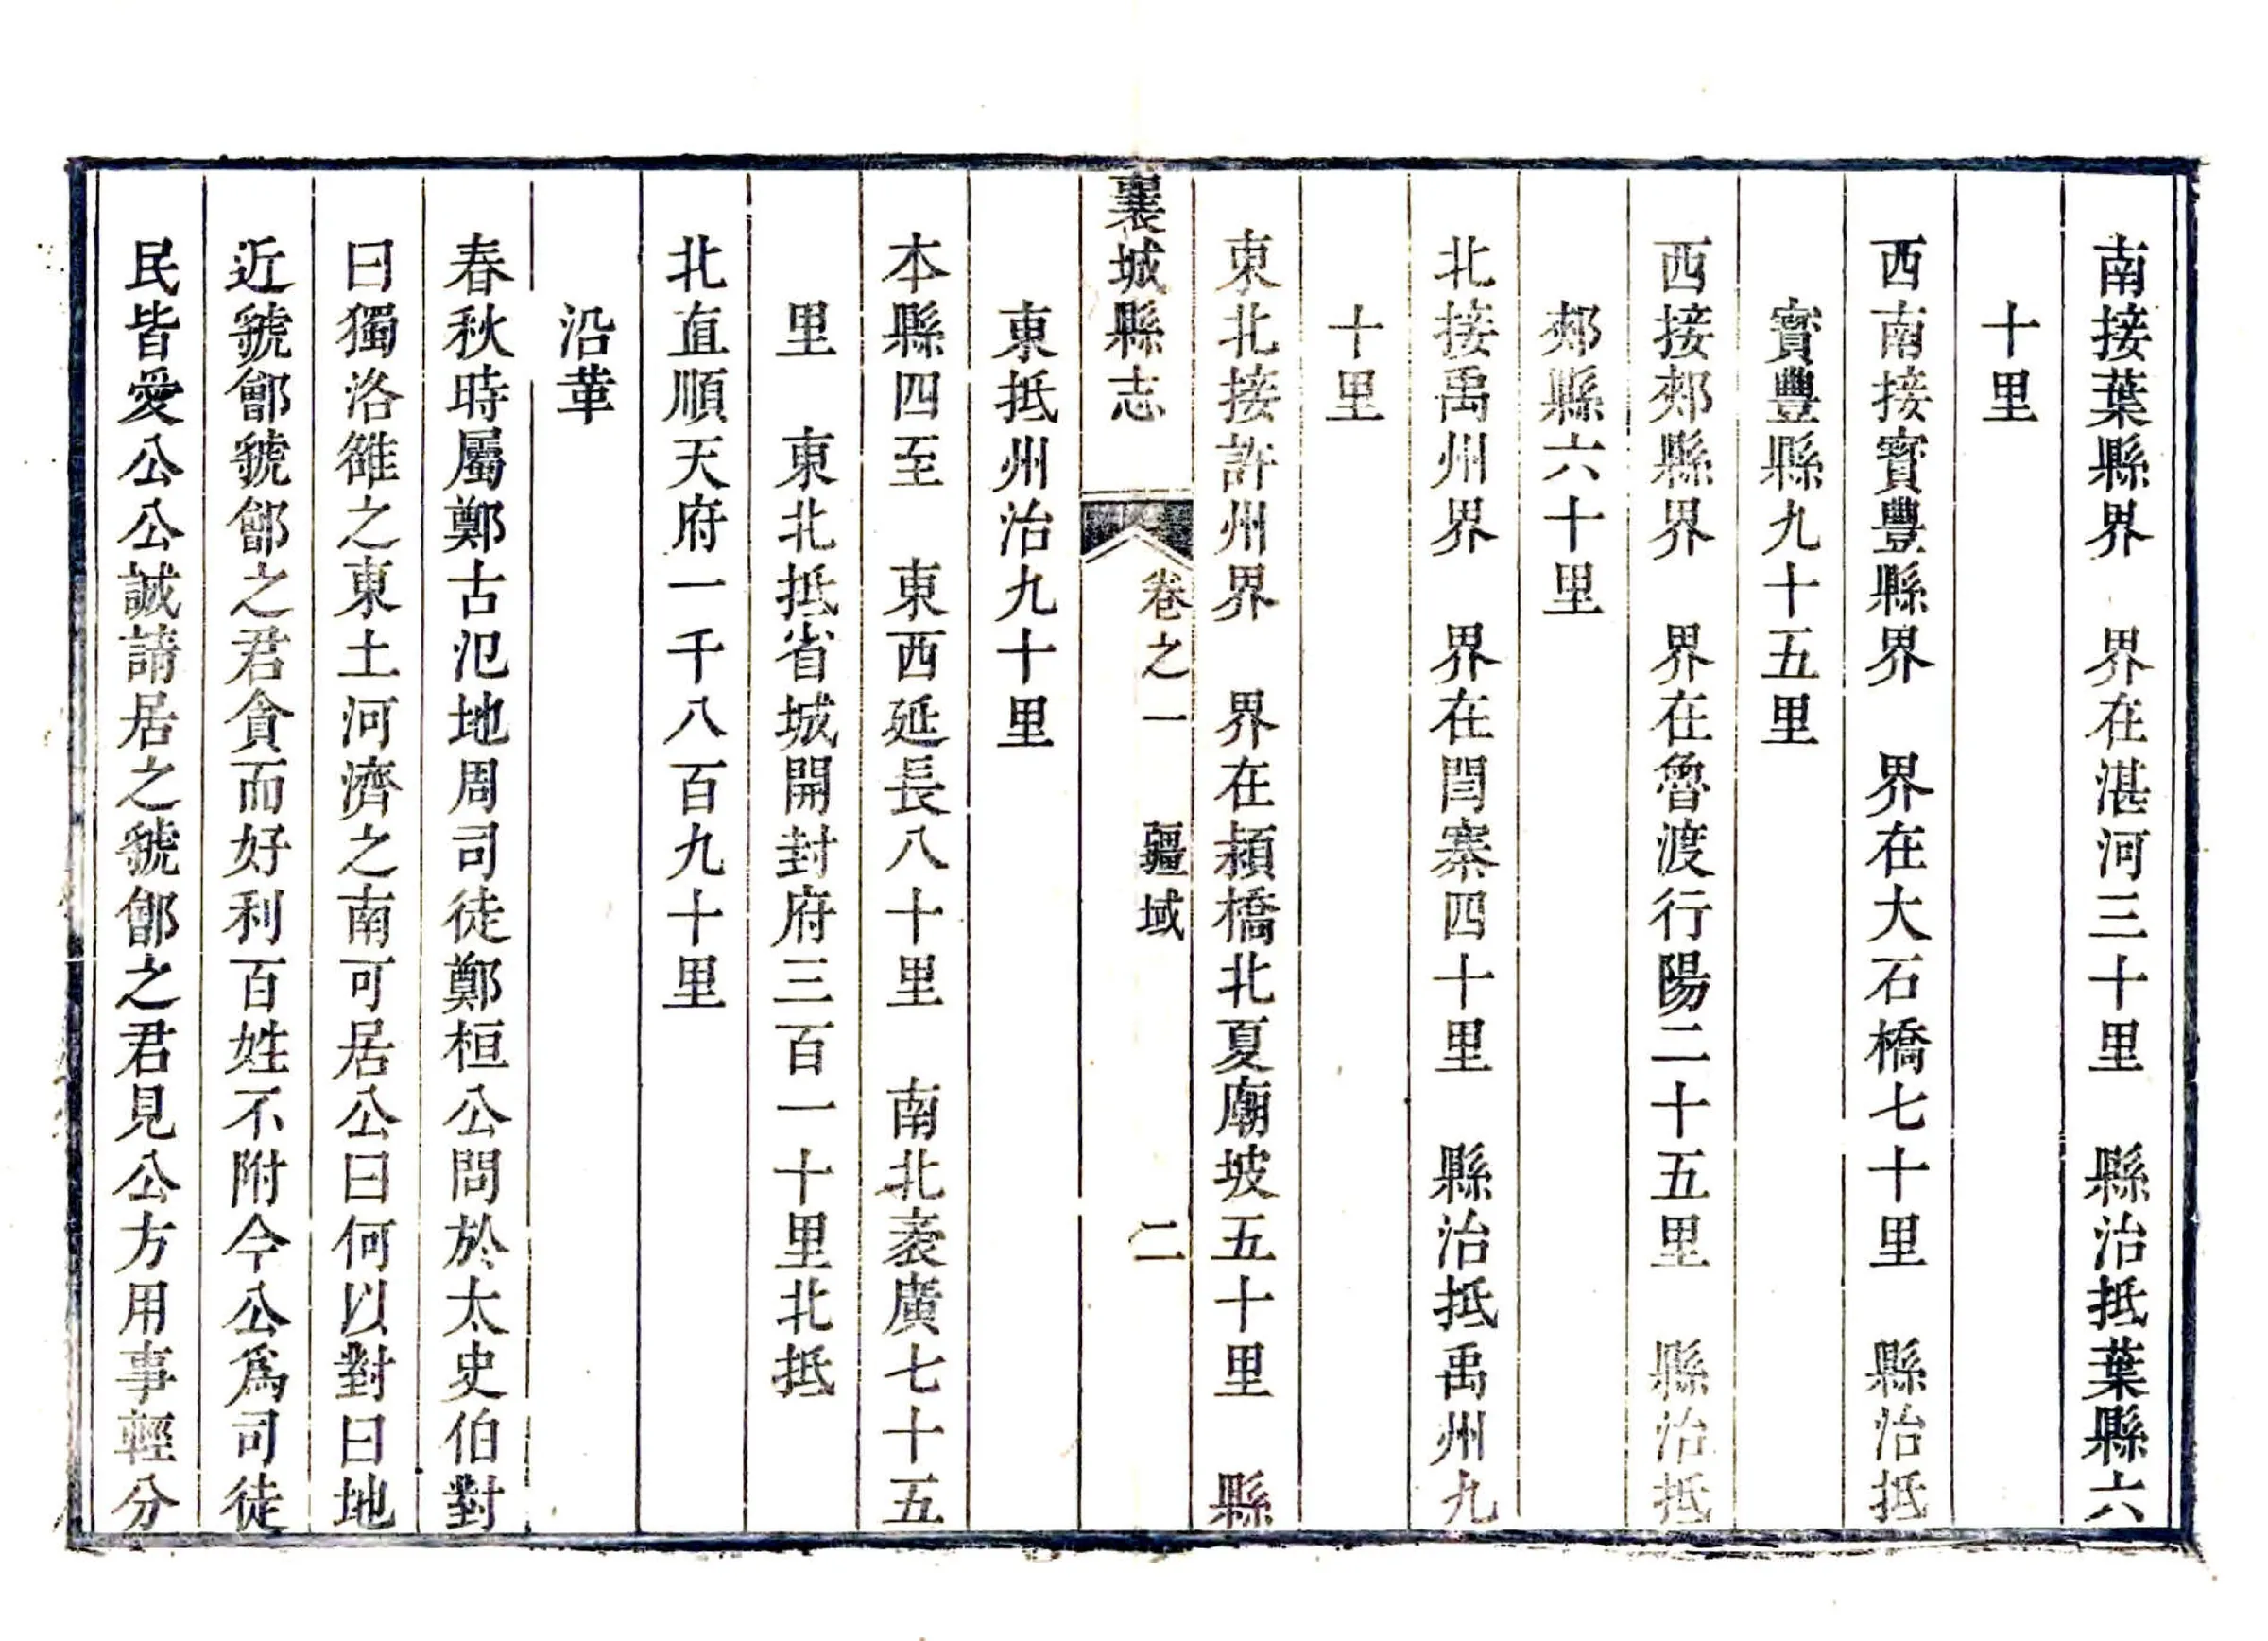 南接葉縣界　界在湛河三十里　縣治抵葉縣六
十里
西南接寳豐縣界　界在大石橋七十里　縣治抵
寳豐縣九十五里
西接郟縣界　界在魯渡行陽二十五里　縣治抵
郟縣六十里
北接禹州界　界在閆寨四十里　縣治抵禹州九
十里
東北接許州界　界在潁橋北夏廟坡五十里　縣
襄城縣志　卷之一　疆域　二
東抵州治九十里
本縣四至　東西延長八十里　南北袤廣七十五
里　東北抵省城開封府三百一十里北抵
北直順天府一千八百九十里
沿革
春秋時屬鄭古氾地周司徒鄭桓公問於太史伯對
曰獨洛雒之東土河濟之南可居公曰何以對曰地
近虢鄶虢鄶之君貪而好利百姓不附今公爲司徒
民皆愛公公誠請居之虢鄶之君見公方用事輕分